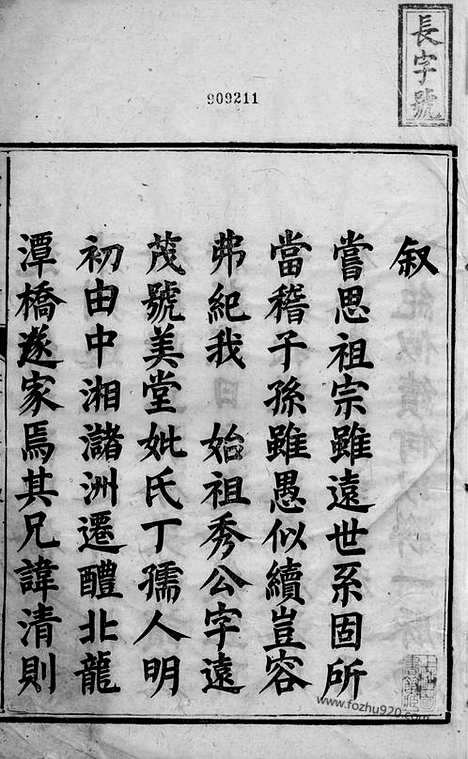 長字號
909211
叙
嘗思祖宗雖遠世系固所
當稽子孫雖愚似續豈容
弗紀我　始祖秀公字遠
茂號美堂妣氏丁孺人明
初由中湘瀦洲遷醴北龍
潭橋遂家焉其兄諱清則
www.fozhu920.com